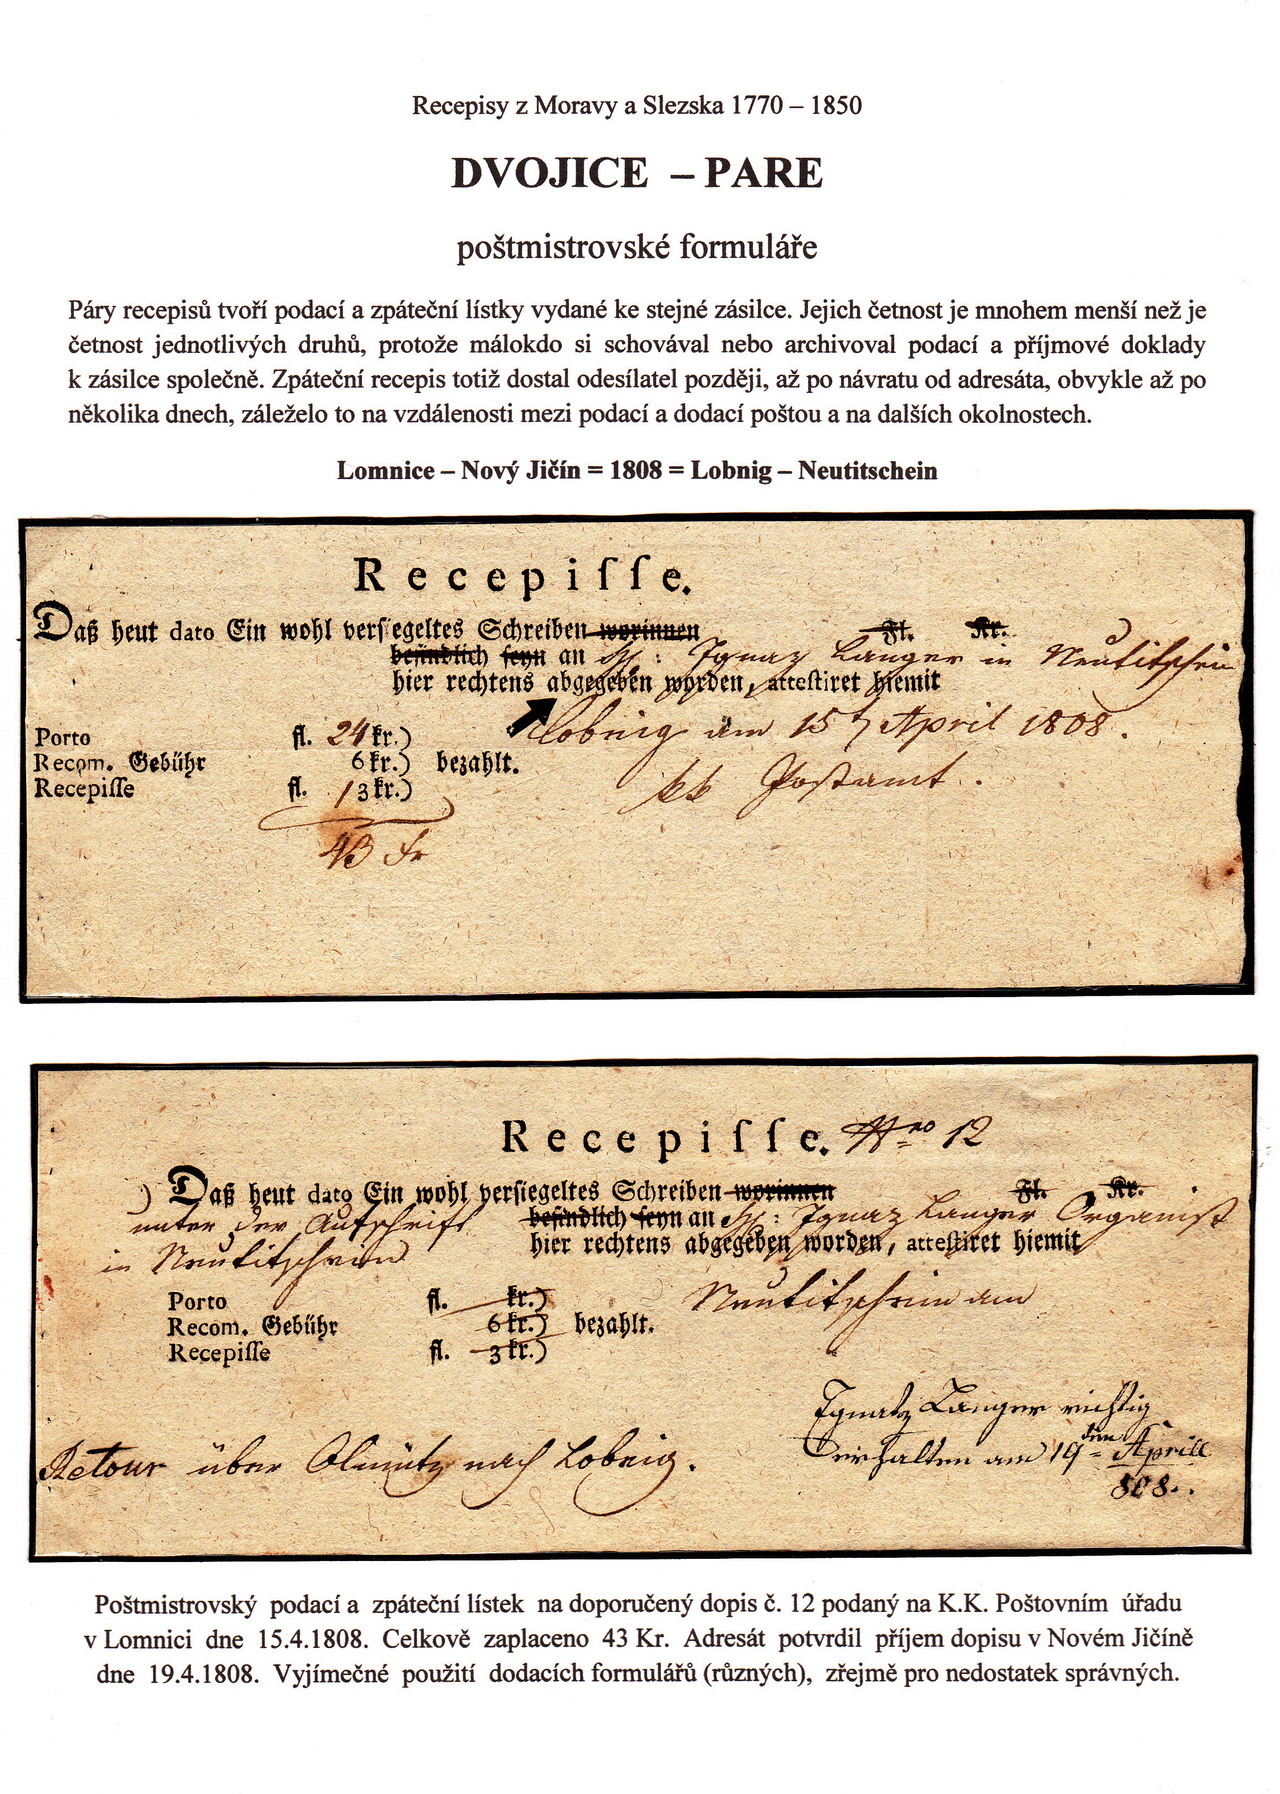 Recepisy z Moravy a Slezska 1770 – 1850
DVOJICE – PARE
poštmistrovské formuláře
Páry recepisů tvoří podací a zpáteční lístky vydané ke stejné zásilce. Jejich četnost je mnohem menší než je
četnost jednotlivých druhů, protože málokdo si schovával nebo archivoval podací a příjmové doklady
k zásilce společně. Zpáteční recepis totiž dostal odesílatel později, až po návratu od adresáta, obvykle až po
několika dnech, záleželo to na vzdálenosti mezi podací a dodací poštou a na dalších okolnostech.
Lomnice – Nový Jičín = 1808 = Lobnig – Neutitschein
Recepiſſe.
Daß heut dato Ein wohl verſiegeltes Schreiben worinnen Fl. Kr.
befindlich ſeyn an H: Ignaz Langer in Neutitschein
hier rechtens abgegeben worden, atteſtiret hiemit
Lobnig am 15 April 1808.
Porto fl. 24 kr.)
Recom. Gebühr 6 kr.) bezahlt.
Recepiſſe fl. 13 kr.)
kk Postamt.
43 Kr
Recepiſſe. Nro 12
Daß heut dato Ein wohl verſiegeltes Schreiben worinnen Fl. Kr.
unter der Aufschrift befindlich ſeyn an H: Ignaz Langer Organist
in Neutitschein hier rechtens abgegeben worden, atteſtiret hiemit
Porto fl. kr.) Neutitschein am
Recom. Gebühr 6 kr.) bezahlt.
Recepiſſe fl. 3 kr.)
Ignatz Langer richtig
Retour über Olmütz nach Lobnig. erhalten am 19ten Aprill
808.
Poštmistrovský podací a zpáteční lístek na doporučený dopis č. 12 podaný na K.K. Poštovním úřadu
v Lomnici dne 15.4.1808. Celkově zaplaceno 43 Kr. Adresát potvrdil příjem dopisu v Novém Jičíně
dne 19.4.1808. Vyjímečné použití dodacích formulářů (různých), zřejmě pro nedostatek správných.